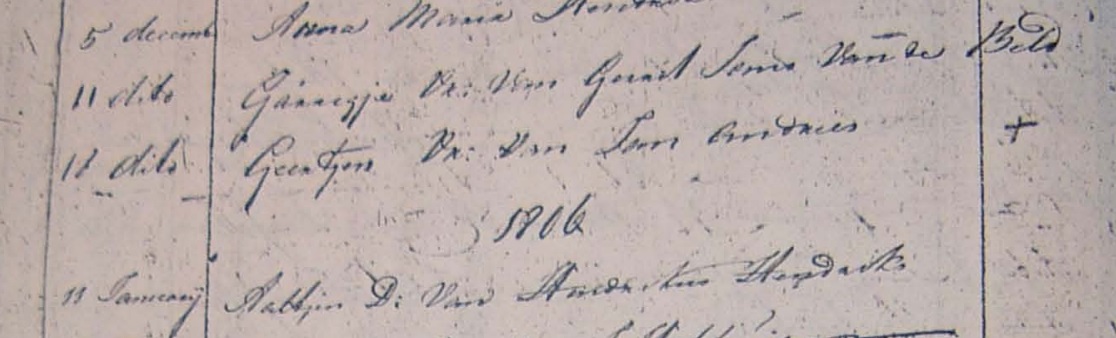 5 decemb Anna Maria
11 dito Vr: Van Gerrit Jans Van de Beld
18 dito Geertjen Vr: Van Jan Andries +
1806
11 Januarij Aaltjen D: Van Hendriks